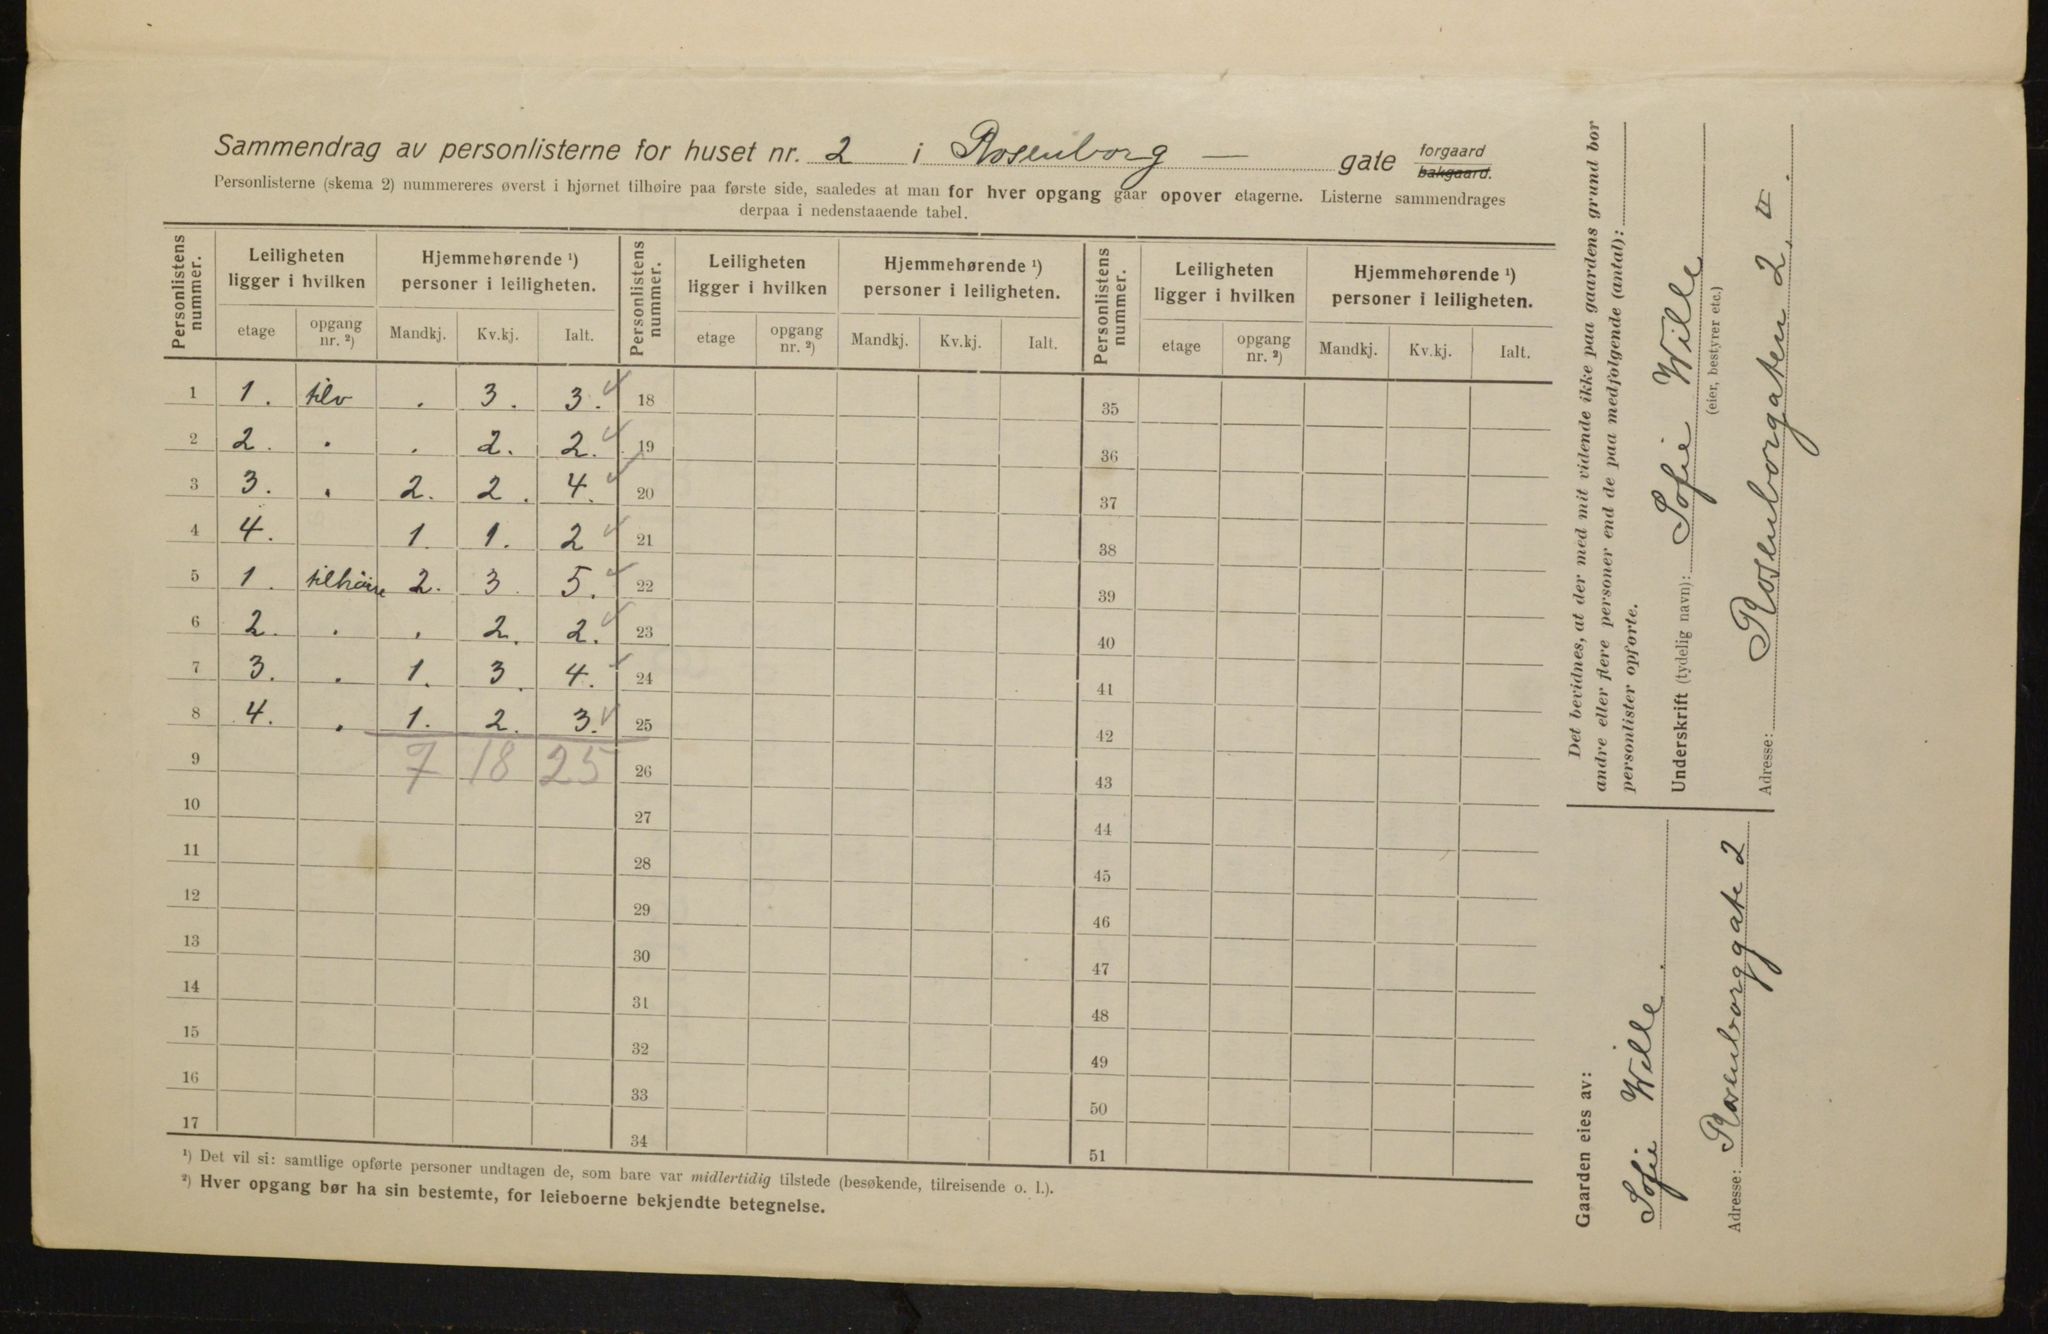 Sammendrag av personlisterne for huset nr. 2 i Rosenborg — gate forgaard
bakgaard.
Personlisterne (skema 2) nummereres øverst i hjørnet tilhøire paa første side, saaledes at man for hver opgang gaar opover etagerne. Listerne sammendrages
derpaa i nedenstaaende tabel.
Personlistens nummer. Leiligheten ligger i hvilken Hjemmehørende ¹) personer i leiligheten. Personlistens nummer. Leiligheten ligger i hvilken Hjemmehørende ¹) personer i leiligheten. Personlistens nummer. Leiligheten ligger i hvilken Hjemmehørende ¹) personer i leiligheten.
etage opgang nr. ²) Mandkj. Kv.kj. Ialt. etage opgang nr. ²) Mandkj. Kv.kj. Ialt. etage opgang nr. ²) Mandkj. Kv.kj. Ialt.
1 1. tilv . 3. 3. 18 35
2 2. . . 2. 2. 19 36
3 3. . 2. 2. 4. 20 37
4 4. 1. 1. 2 21 38
5 1. tilhöire 2. 3. 5. 22 39
6 2. . . 2. 2. 23 40
7 3. . 1. 3. 4. 24 41
8 4. . 1. 2. 3. 25 42
9 7 18 25 26 43
10 27 44
11 28 45
12 29 46
13 30 47
14 31 48
15 32 49
16 33 50
17 34 51
¹) Det vil si: samtlige opførte personer undtagen de, som bare var midlertidig tilstede (besøkende, tilreisende o. l.).
²) Hver opgang bør ha sin bestemte, for leieboerne bekjendte betegnelse.
Det bevidnes, at der med mit vidende ikke paa gaardens grund bor
andre eller flere personer end de paa medfølgende (antal):
personlister opførte.
Underskrift (tydelig navn): Sofie Wille
(eier, bestyrer etc.)
Adresse: Rosenborgaten 2,
Gaarden eies av:
Sofie Wille.
Adresse: Rosenborggate 2